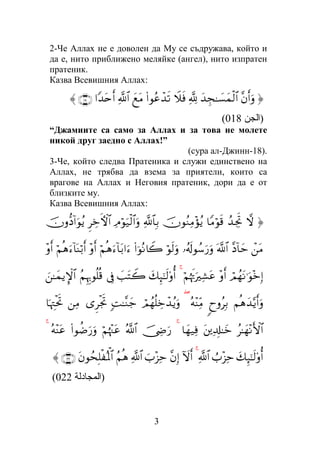 2-Че Аллах не е доволен да Му се съдружава, който и
да е, нито приближено меляйке (ангел), нито изпратен
пратеник.
Казва Всевишния Аллах:
﴿ وَأَنَّ ٱلْمَسَٰجِدَ لِلَّهِ فَلَا تَدْعُوا۟ مَعَ ٱللَّهِ أَحَدًا ﴾
(الجن 018)
“Джамиите са само за Аллах и за това не молете
никой друг заедно с Аллах!”
(сура ал-Джинн-18).
3-Че, който следва Пратеника и служи единствено на
Аллах, не трябва да взема за приятели, които са
врагове на Аллах и Неговия пратеник, дори да е от
близките му.
Казва Всевишния Аллах:
﴿ لَّا تَجِدُ قَوْمًا يُؤْمِنُونَ بِٱللَّهِ وَٱلْيَوْمِ ٱلْءَاخِرِ يُوَآدُّونَ
مَنْ حَآدَّ ٱللَّهَ وَرَسُولَهُۥ وَلَوْ كَانُوٓا۟ ءَابَآءَهُمْ أَوْ أَبْنَآءَهُمْ أَوْ
إِخْوَٰنَهُمْ أَوْ عَشِيرَتَهُمْ ۚ أُو۟لَٰٓئِكَ كَتَبَ فِى قُلُوبِهِمُ ٱلْإِيمَٰنَ
وَأَيَّدَهُم بِرُوحٍ مِّنْهُ ۖ وَيُدْخِلُهُمْ جَنَّٰتٍ تَجْرِى مِن تَحْتِهَا
ٱلْأَنْهَٰرُ خَٰلِدِينَ فِيهَا ۚ رَضِىَ ٱللَّهُ عَنْهُمْ وَرَضُوا۟ عَنْهُ ۚ
أُو۟لَٰٓئِكَ حِزْبُ ٱللَّهِ ۚ أَلَآ إِنَّ حِزْبَ ٱللَّهِ هُمُ ٱلْمُفْلِحُونَ ﴾
(المجادلة 022)
3